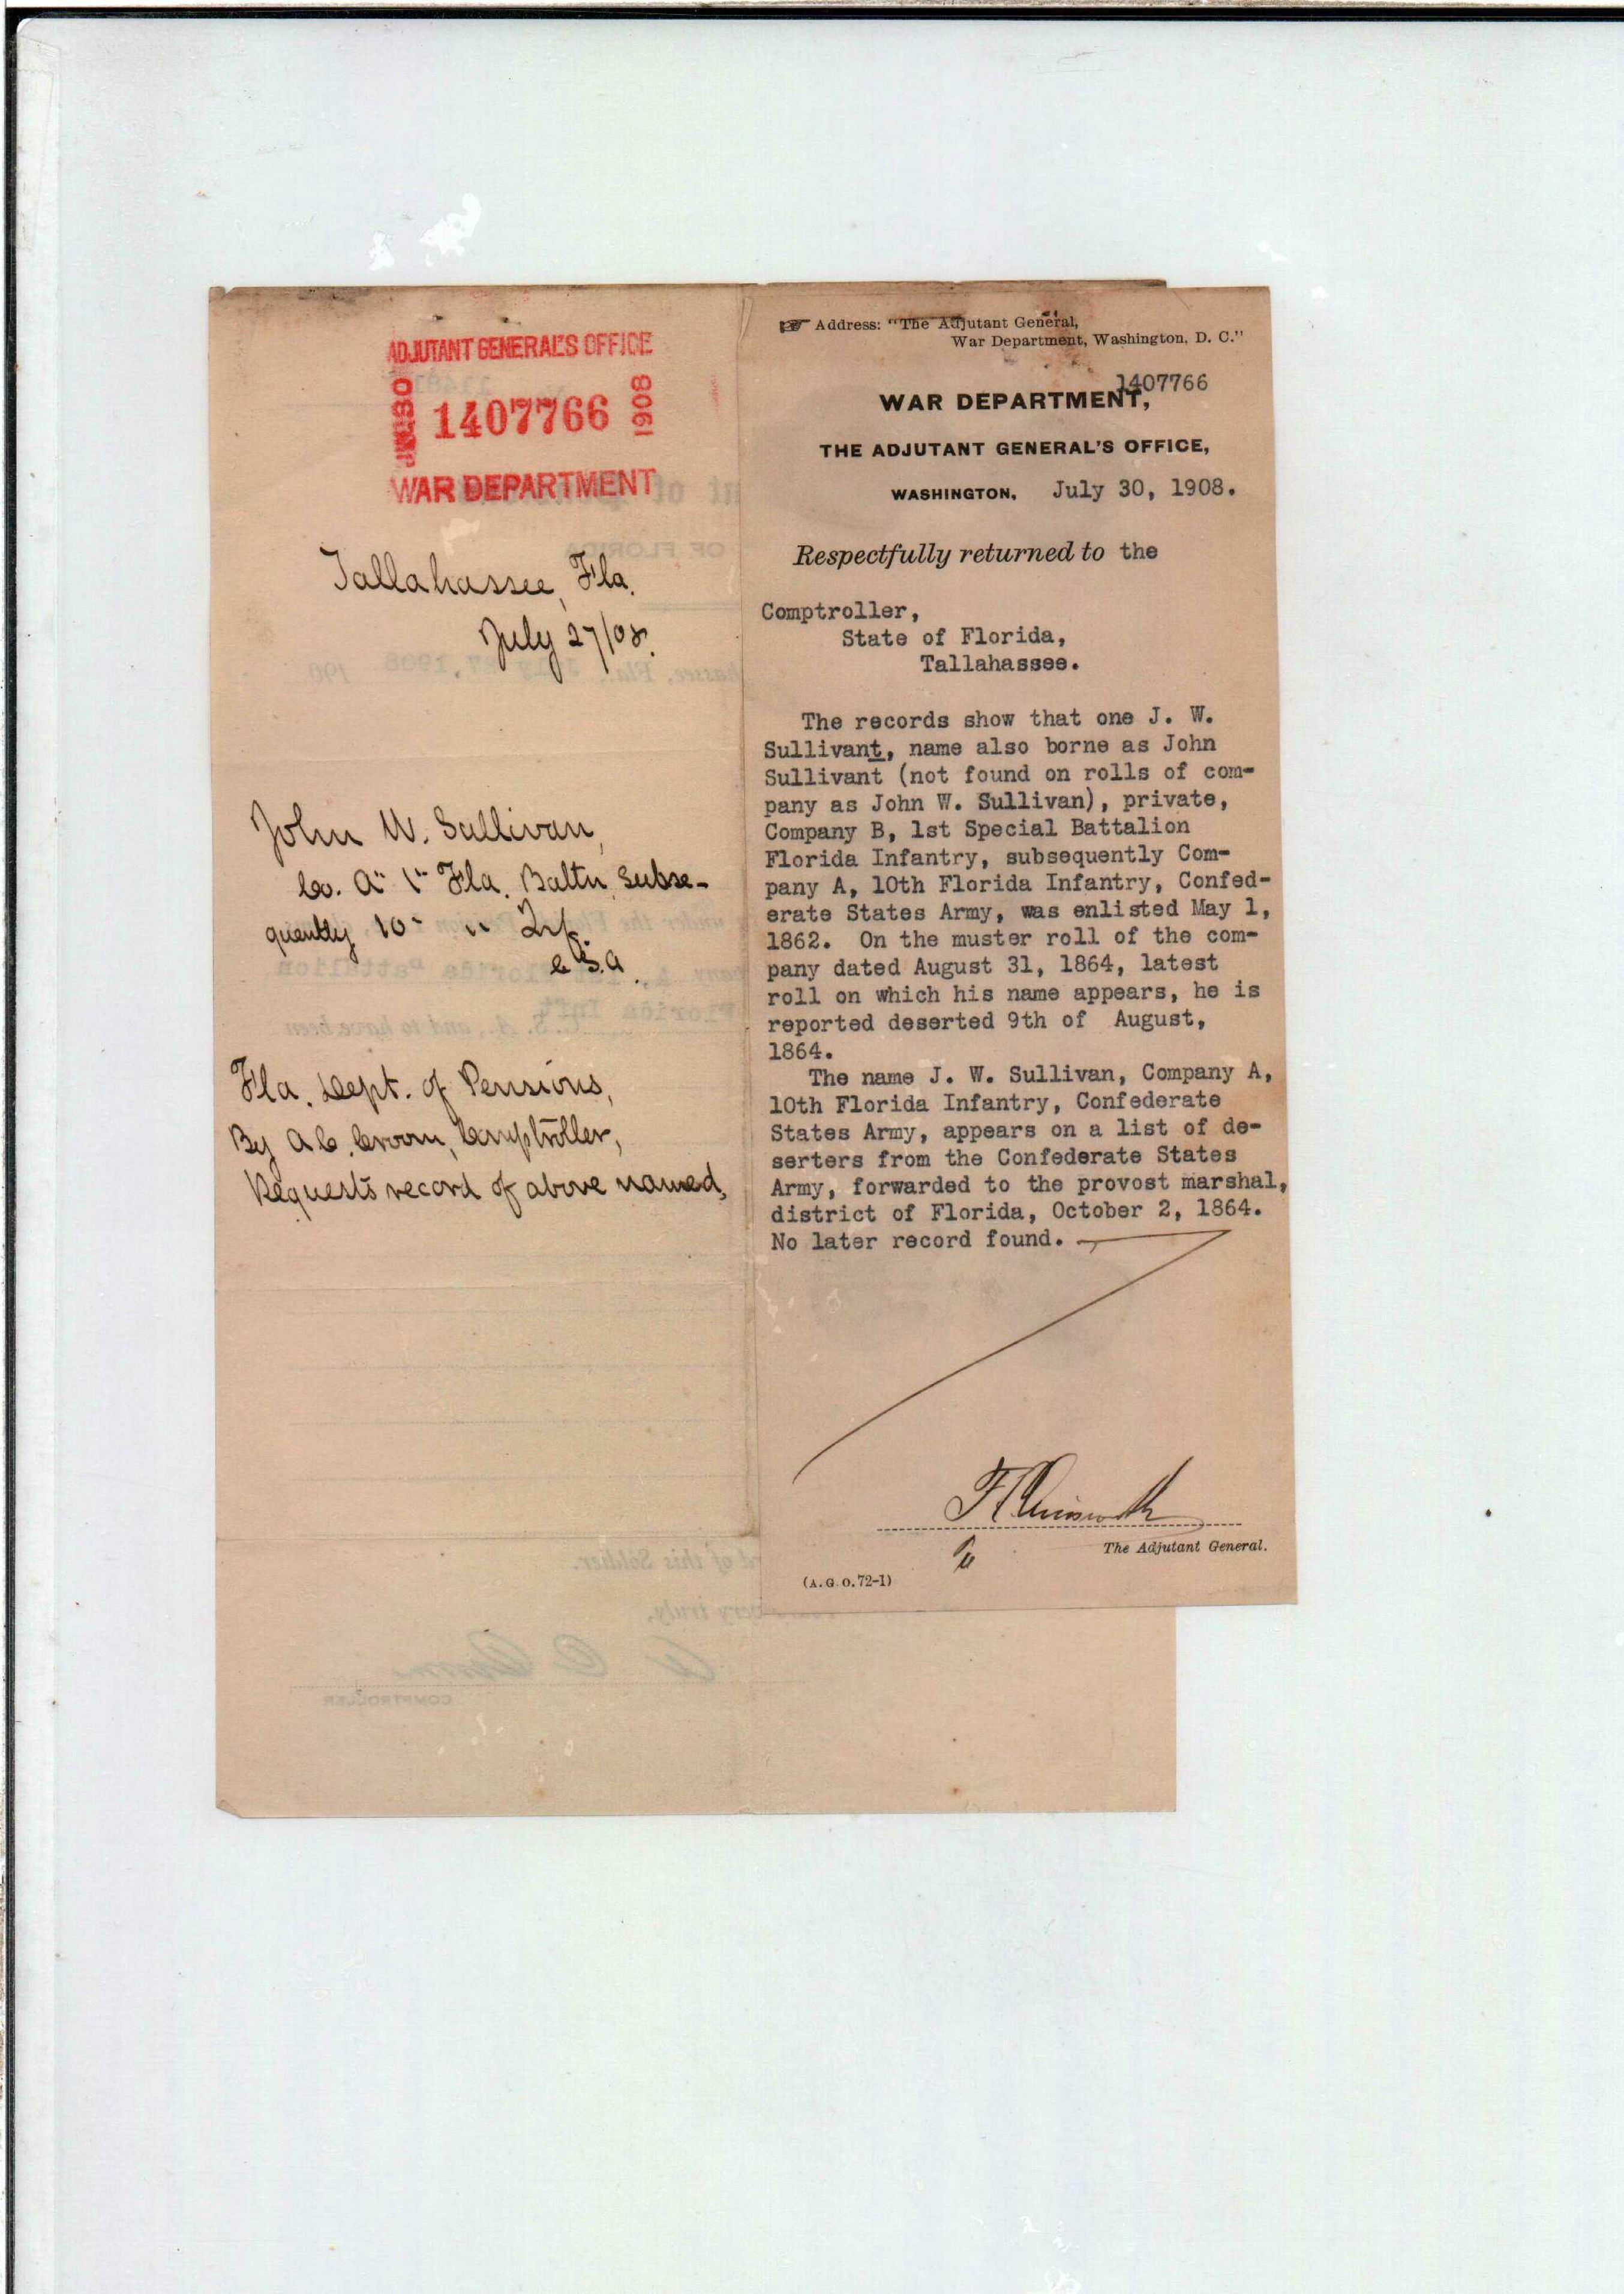 ADJUTANT GENERAL'S OFFICE
1407766
1908
WAR DEPARTMENT
Tallahassee, Fla.
July 27/08.
John W. Sullivan,
Co. A" 1" Fla. Baltn subse-
quently 10" " Inf.
C.S.A.
Fla. Dept. of Pensions,
By A.C. Croom, Comptroller,
Requests record of above named.
Address: "The Adjutant General,
War Department, Washington, D. C."
1407766
WAR DEPARTMENT,
THE ADJUTANT GENERAL'S OFFICE,
WASHINGTON, July 30, 1908.
Respectfully returned to the
Comptroller,
State of Florida,
Tallahassee.
The records show that one J. W.
Sullivant, name also borne as John
Sullivant (not found on rolls of com-
pany as John W. Sullivan), private,
Company B, 1st Special Battalion
Florida Infantry, subsequently Com-
pany A, 10th Florida Infantry, Confed-
erate States Army, was enlisted May 1,
1862. On the muster roll of the com-
pany dated August 31, 1864, latest
roll on which his name appears, he is
reported deserted 9th of August,
1864.
The name J. W. Sullivan, Company A,
10th Florida Infantry, Confederate
States Army, appears on a list of de-
serters from the Confederate States
Army, forwarded to the provost marshal,
district of Florida, October 2, 1864.
No later record found.
F C Ainsworth
The Adjutant General.
(A. G. O. 72-1)